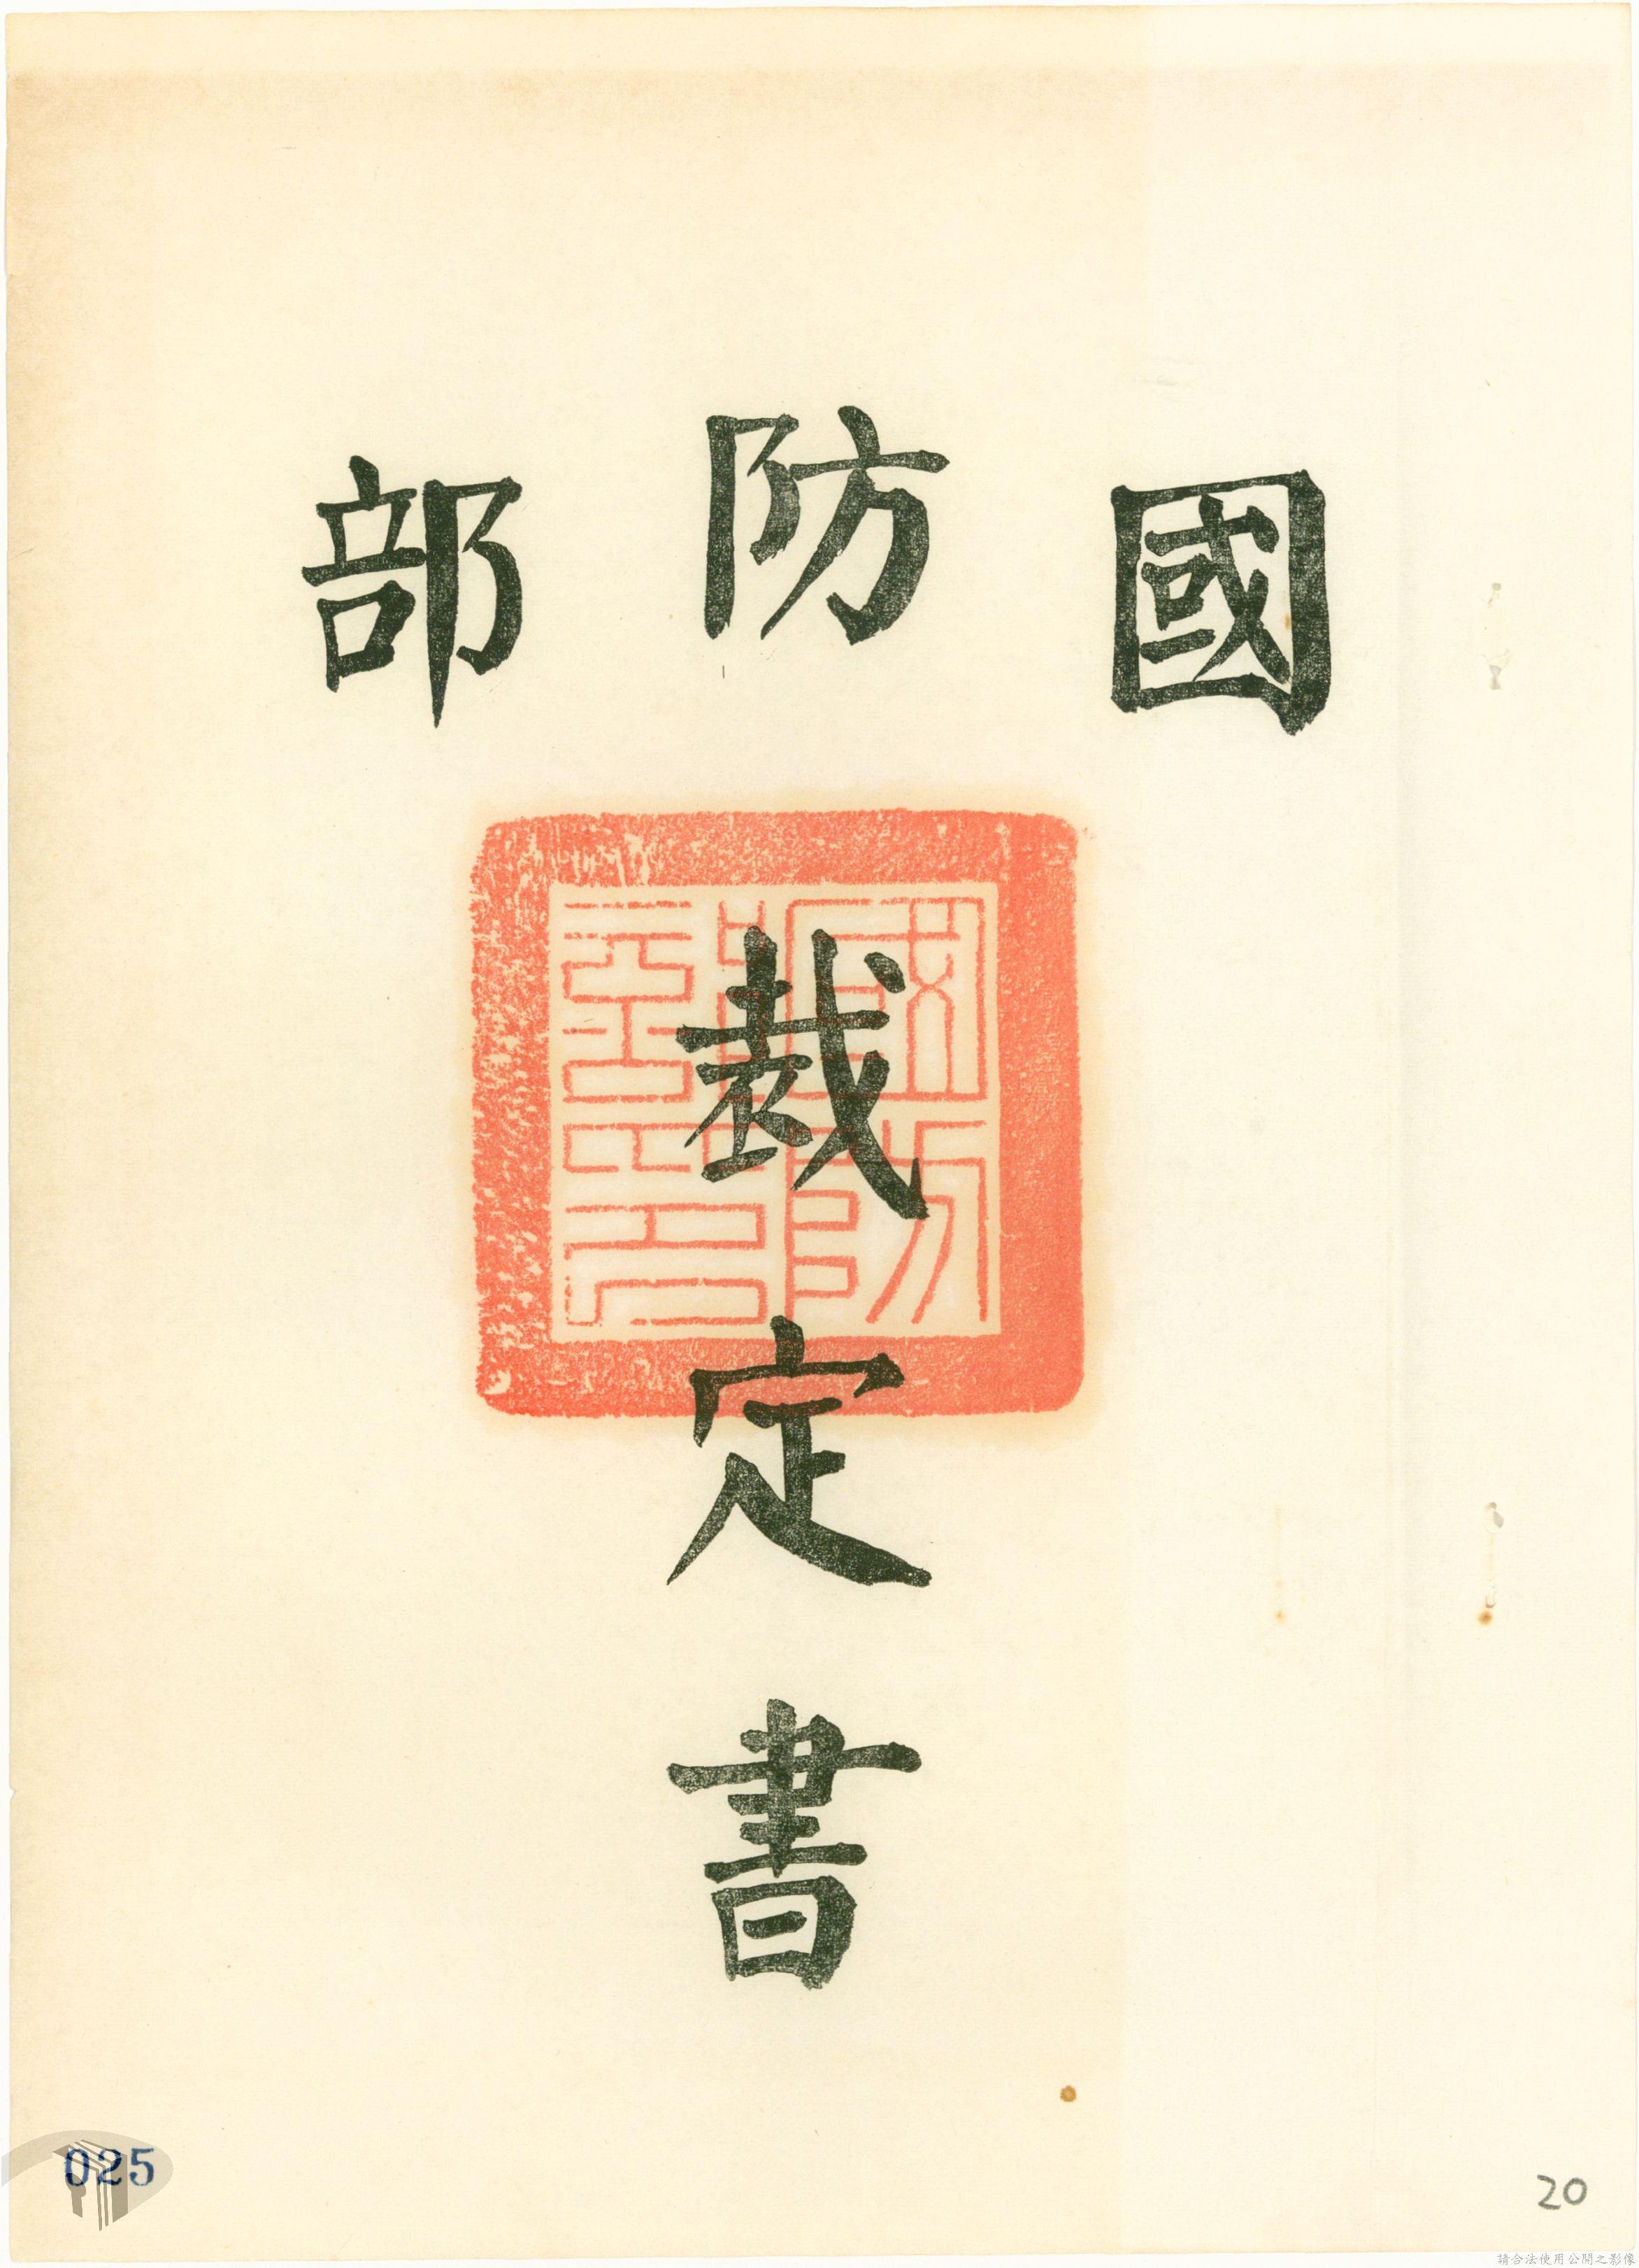 國防部
裁定書
國防部印
025
20
請合法使用公開之影像